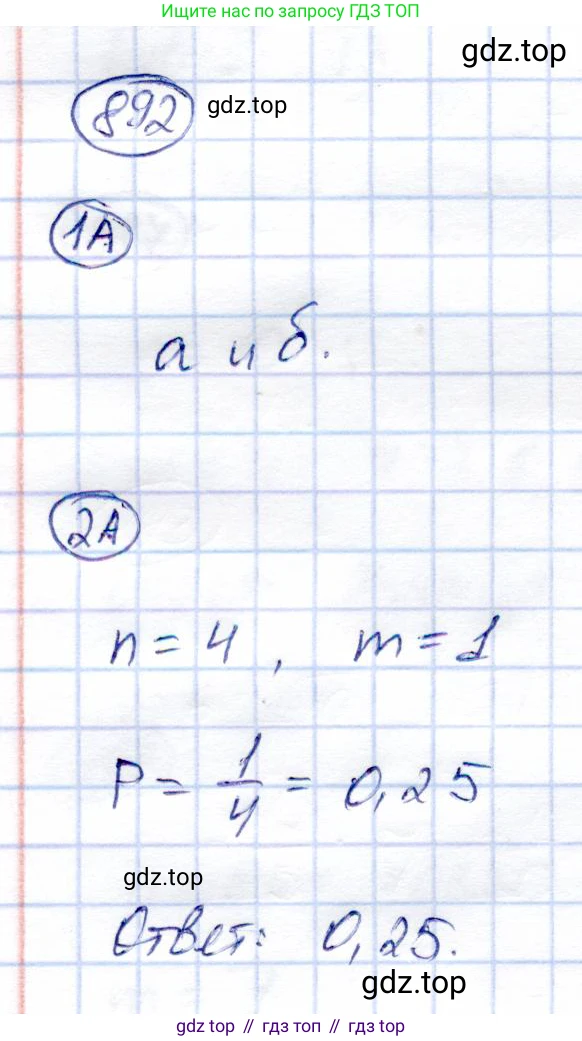 Ищите нас по запросу ГДЗ ТОП
gdz.top
892 gdz.top
1А
а и б.
2А
n = 4 , m = 1
P = 1/4 = 0,25
gdz.top
Ответ: 0,25.
gdz.top
gdz top // гдз топ // gdz top